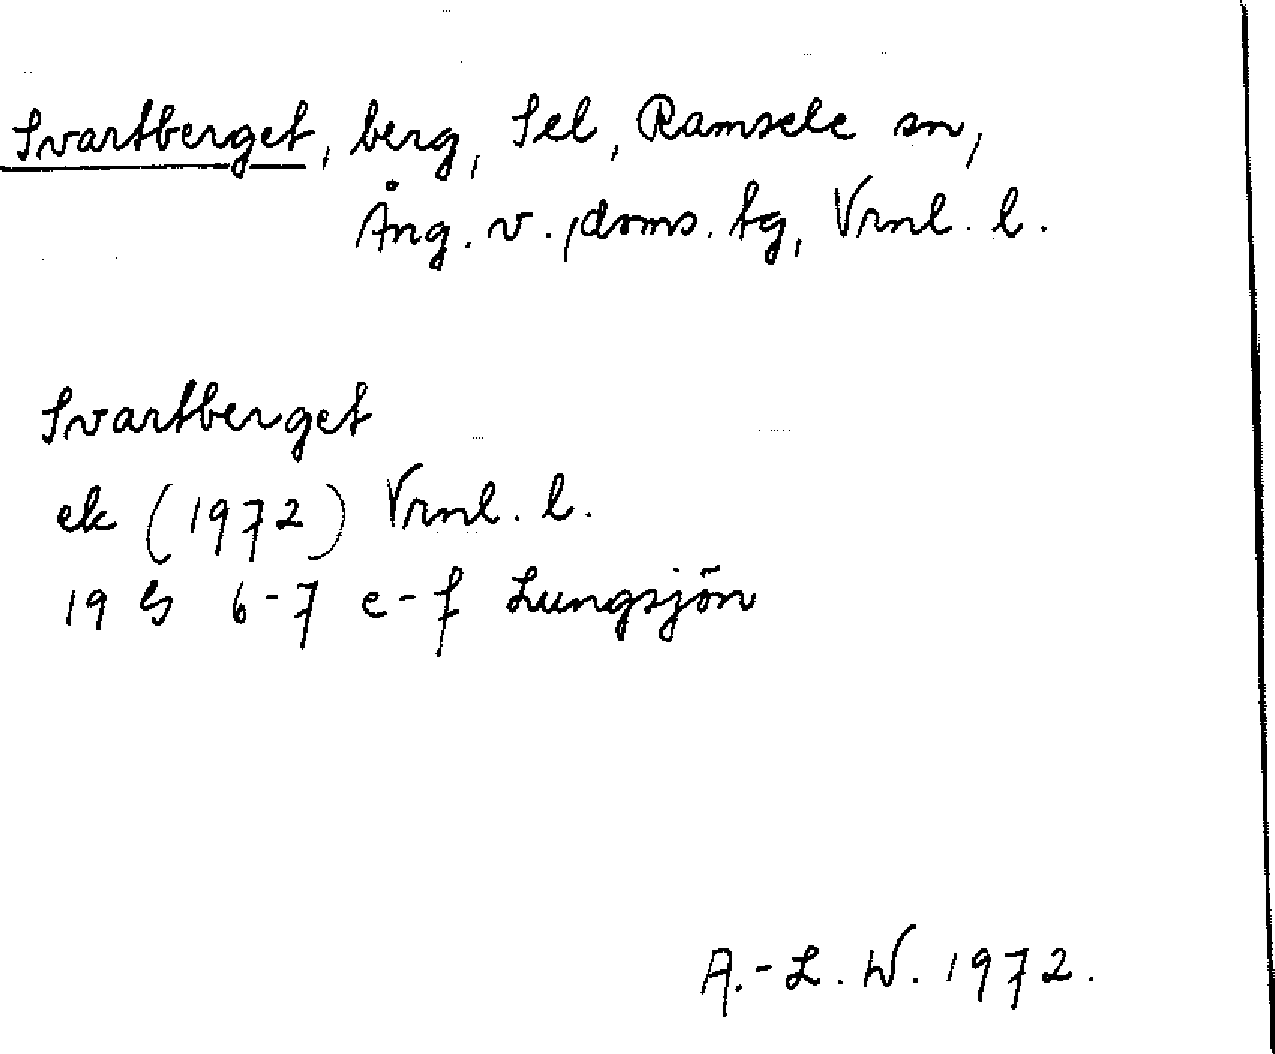 Svartberget, berg, Sel, Ramsele sn,
Ång. v., doms. tg, Vrnl. l.
Svartberget
ek (1972) Vrnl. l.
19 G 6-7 e-f Lungsjön
A.-L. W. 1972.